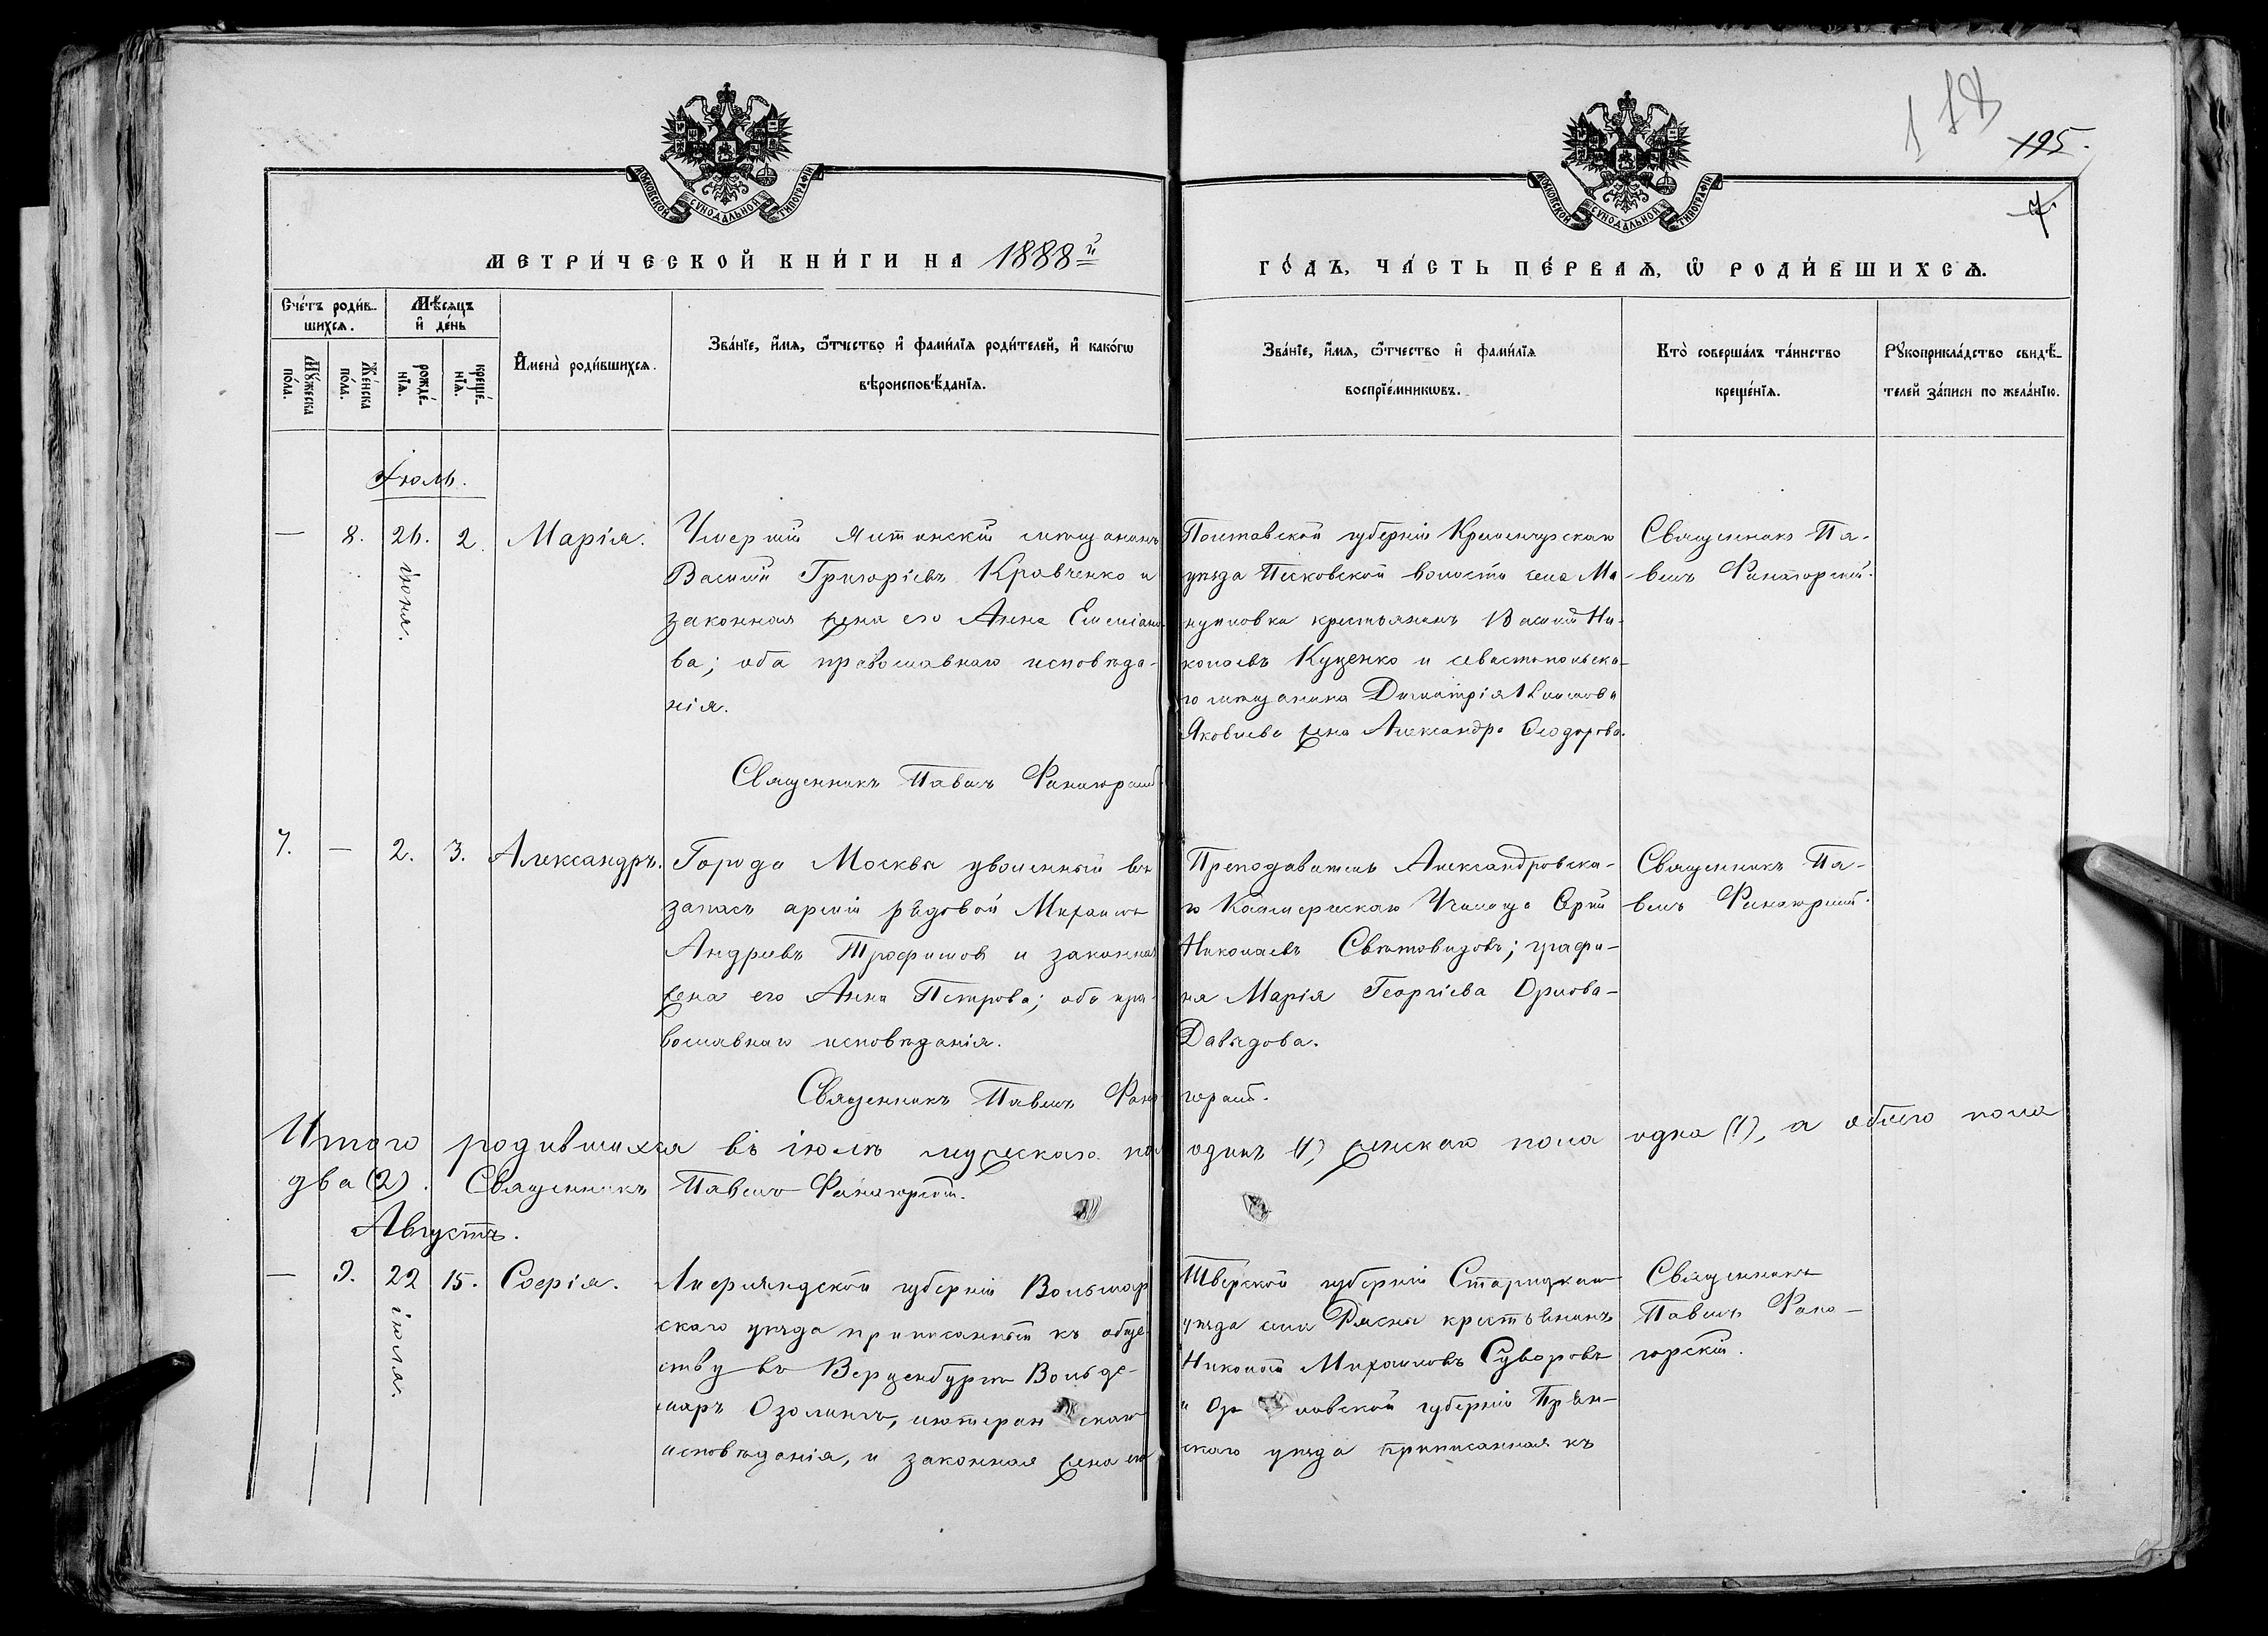 118
195.
7.
МОСКОВСКОЙ СѴНОДАЛЬНОЙ ТИПОГРАФІИ
МОСКОВСКОЙ СѴНОДАЛЬНОЙ ТИПОГРАФІИ
МЕТРИ́ЧЕСКОЙ КНИ́ГИ НА 1888й
ГО́ДЪ, ЧА́СТЬ ПЕ́РВАѦ, Ѡ РОДИ́ВШИХСѦ.
Сче́тъ роди́в-
шихсѧ.
Мꙋ́жеска
по́ла.
Же́нска
по́ла.
Мѣ́сѧцъ
и҆ де́нь
рожде́-
нїѧ.
креще́-
нїѧ.
И҆мена̀ роди́вшихсѧ.
Зва́нїе, и҆́мѧ, ѻ҆́тчество и҆ фами́лїѧ роди́телей, и҆ како́гѡ
вѣроисповѣ́данїѧ.
Зва́нїе, и҆́мѧ, ѻ҆́тчество и҆ фами́лїѧ
воспрїе́мникѡвъ.
Кто̀ соверша́лъ та́инство
креще́нїѧ.
Рꙋкоприкла́дство свидѣ́-
телей за́писи по жела́нїю.
Іюль.
— 8. 26. 2. Марія.
іюня.
Умершій Ялтинскій мѣщанинъ
Василій Григоріевъ Кравченко и
законная жена его Анна Емеліано-
ва; оба православнаго исповѣда-
нія.
Полтавской губерніи Кременчугскаго
уѣзда Песковской волости села Ма-
нуиловки крестьянинъ Василій Ни-
колаевъ Куценко и севастопольска-
го мѣщанина Димитрія
Яковлева жена Александра Ѳеодорова.
Священникъ Па-
велъ Фанагорскій.
Священникъ Павелъ Фанагорскій
7. — 2. 3. Александръ.
Города Москвы уволенный въ
запасъ арміи рядовой Михаилъ
Андреевъ Трофимовъ и законная
жена его Анна Петрова; оба пра-
вославнаго исповѣданія.
Преподаватель Александровска-
го Коммерческаго Училища
Николаевъ Свѣтовидовъ; графи-
ня Марія Георгіева Орлова-
Давыдова.
Священникъ Па-
велъ Фанагорскій.
Священникъ Павелъ Фанагорскій.
Итого родившихся въ іюлѣ мужескаго пола одинъ (1), женскаго пола одна (1), а обоего пола
два (2). Священникъ Павелъ Фанагорскій.
Августъ.
— 9. 22 15. Софія.
іюля.
Лифляндской губерніи Вольмар
скаго уѣзда приписанный къ обще-
ству въ Вольде-
маръ Озолингъ, лютеранскаго
исповѣданія, и законная жена его
Тверской губерніи Старицкаго
уѣзда села Рясны крестьянинъ
Николай Михаиловъ Суворовъ
и Орловской губерніи Брян-
скаго уѣзда приписанная къ
Священникъ
Павелъ Фана-
горскій.